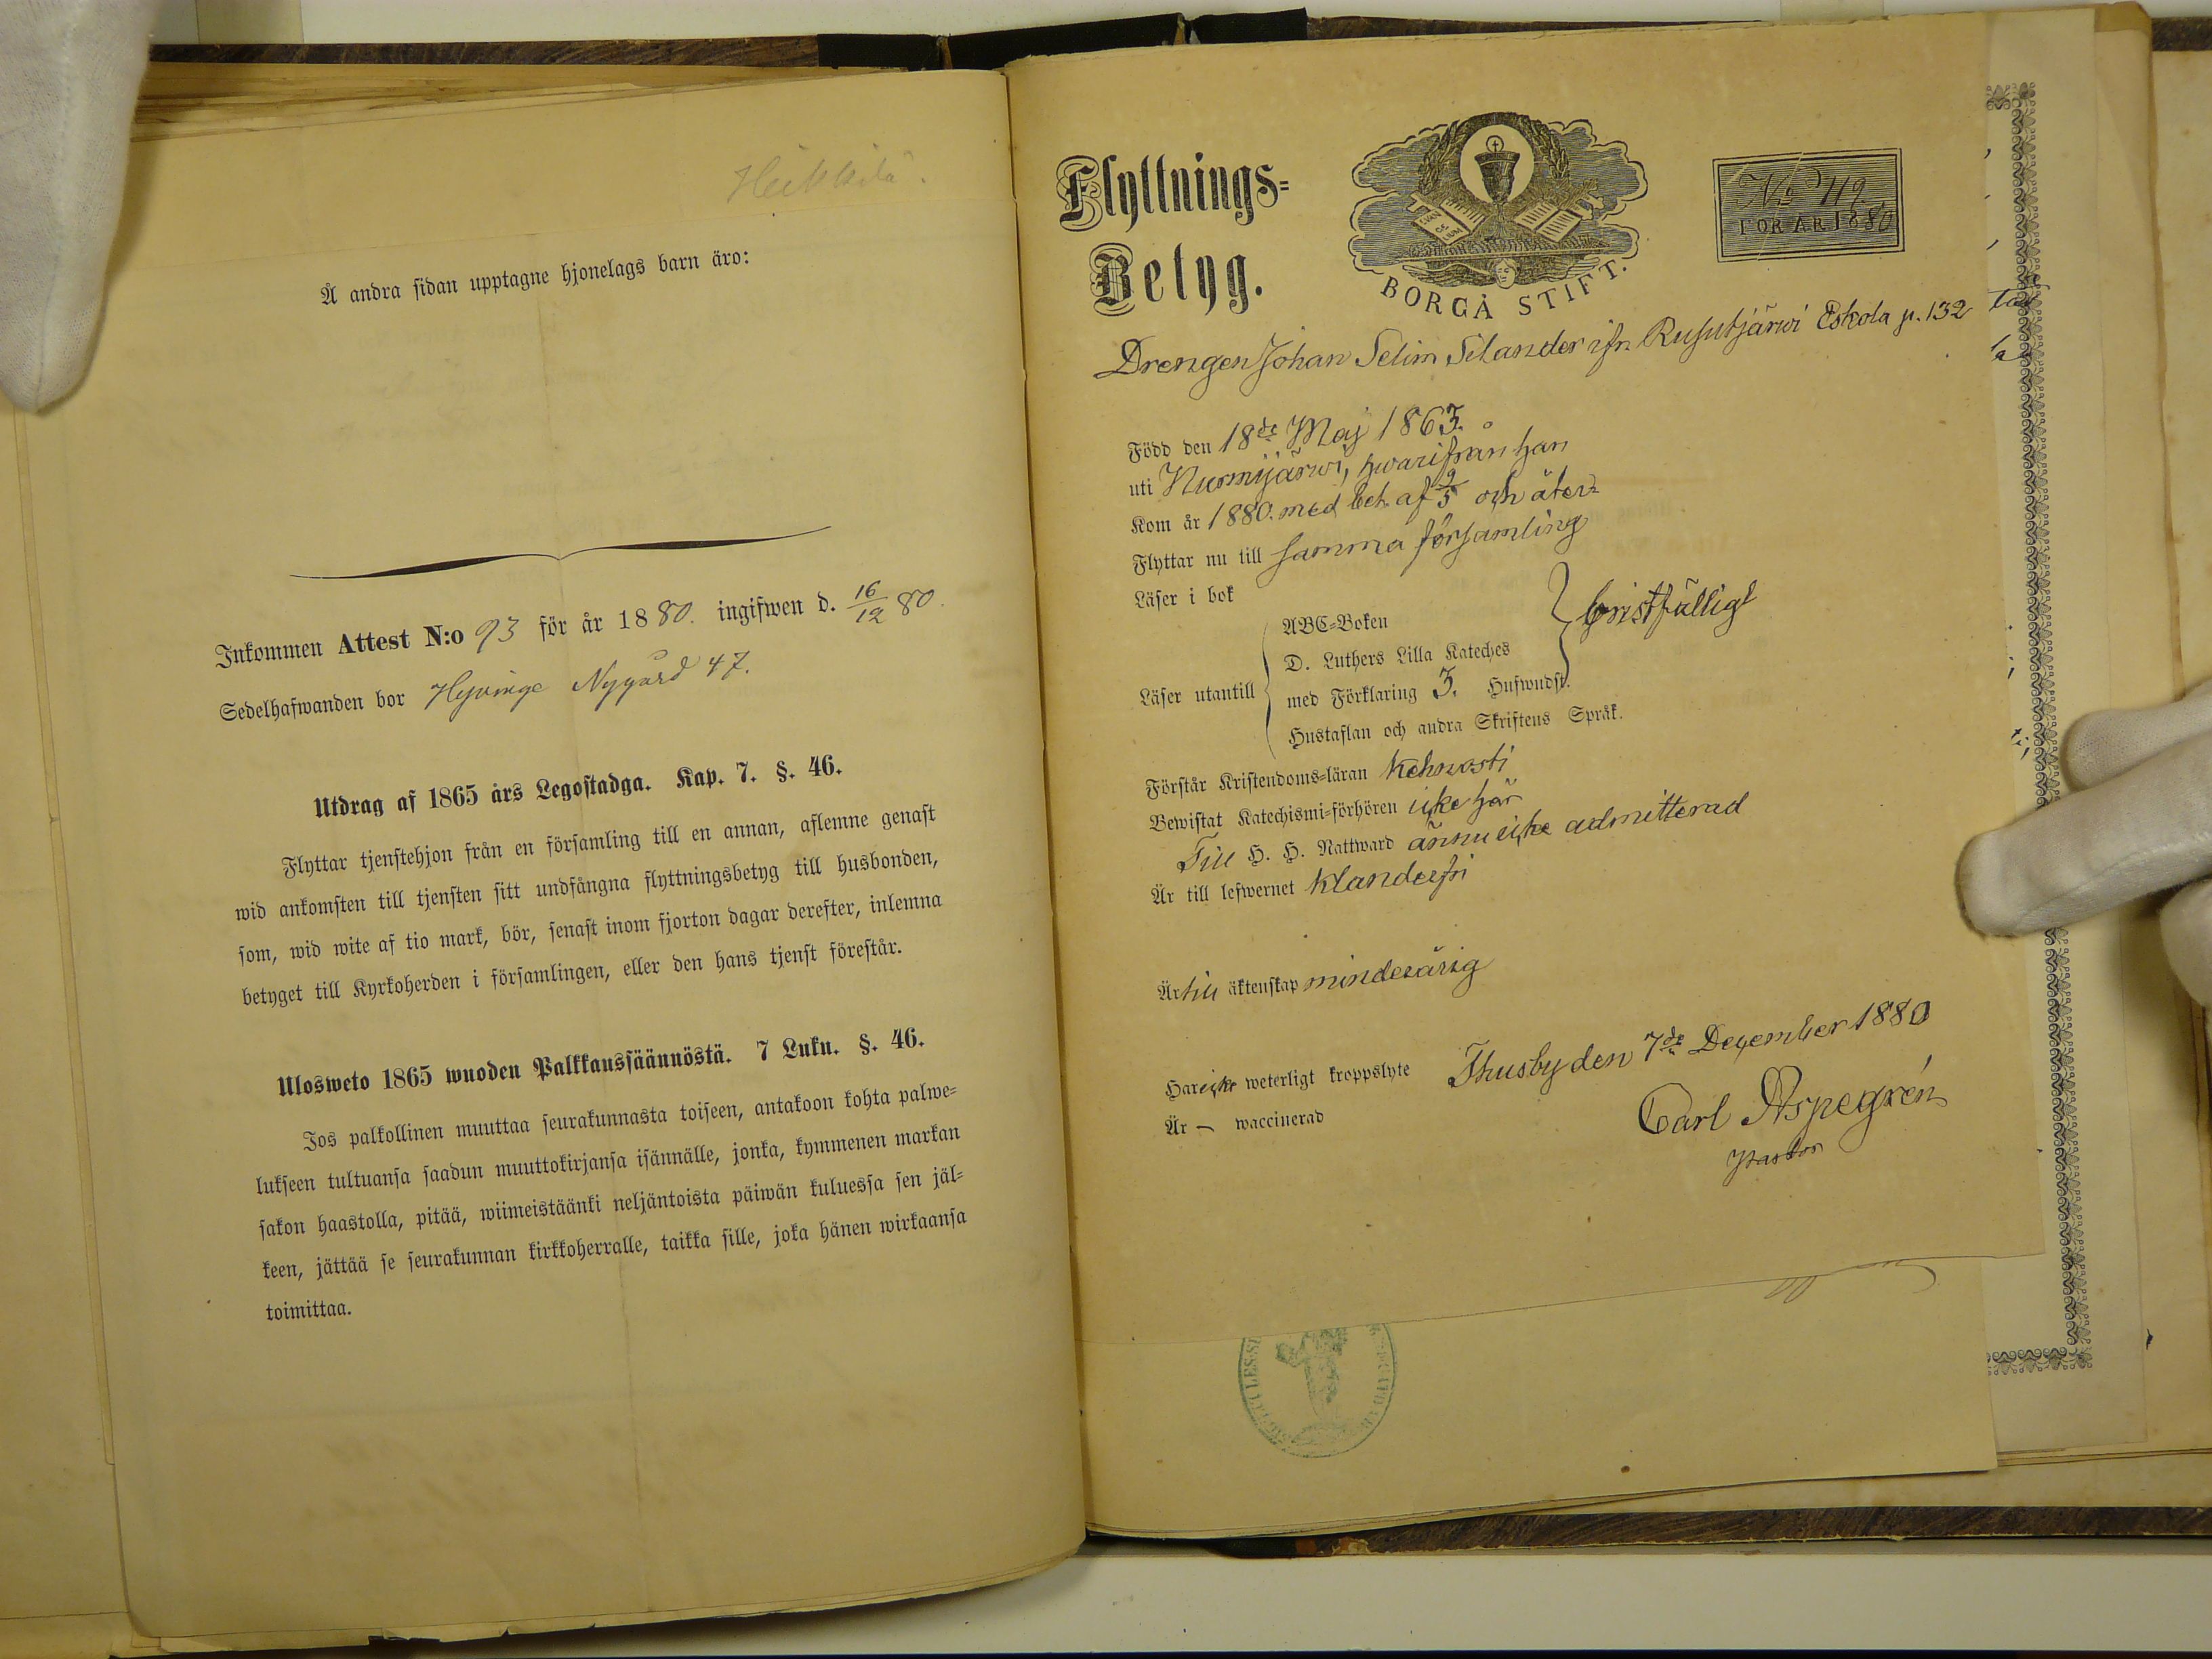 Heikkilä.
Å andra sidan upptagne hjonelags barn äro:
Inkommen Attest N:o 93 för år 1880. ingifwen d. 16/12 80.
Sedelhafwanden bor Hyvinge Nygård 47.
Utdrag af 1865 års Legostadga. Kap. 7. §. 46.
Flyttar tjenstehjon från en församling till en annan, aflemne genast
wid ankomsten till tjensten sitt undfångna flyttningsbetyg till husbonden,
som, wid wite af tio mark, bör, senast inom fjorton dagar derefter, inlemna
betyget till Kyrkoherden i församlingen, eller den hans tjenst förestår.
Ulosweto 1865 wuoden Palkkaussäännöstä. 7 Luku. §. 46.
Jos palkollinen muuttaa seurakunnasta toiseen, antakoon kohta palwe=
lukseen tultuansa saadun muuttokirjansa isännälle, jonka, kymmenen markan
sakon haastolla, pitää, wiimeistäänki neljäntoista päiwän kuluessa sen jäl=
keen, jättää se seurakunnan kirkkoherralle, taikka sille, joka hänen wirkaansa
toimittaa.
Flyttnings=
Betyg.
EVAN
GE
LIUM
BORGÅ STIFT.
No 119.
FÖR ÅR 1880
Drengen Johan Selim Silander ifr. Rusutjärwi Eskola p. 132
Född den 18de Maj 1863.
uti Nurmijärwi, hwarifrån han
Kom år 1880. med bet. af 9/5 och åter=
Flyttar nu till samma församling
Läser i bok
Läser utantill
ABC=Boken
D. Luthers Lilla Kateches
med Förklaring 3. Hufwudst.
Hustaflan och andra Skriftens Språk.
bristfälligt
Förstår Kristendoms=läran kehnosti
Bewistat Katechismi=förhören icke här
Till H. H. Nattward ännu icke admitterad
Är till lefwernet klanderfri
Är till äktenskap minderårig
Har icke weterligt kroppslyte
Är — waccinerad
Thusby den 7de December 1880
Carl Aspegrén
Pastor